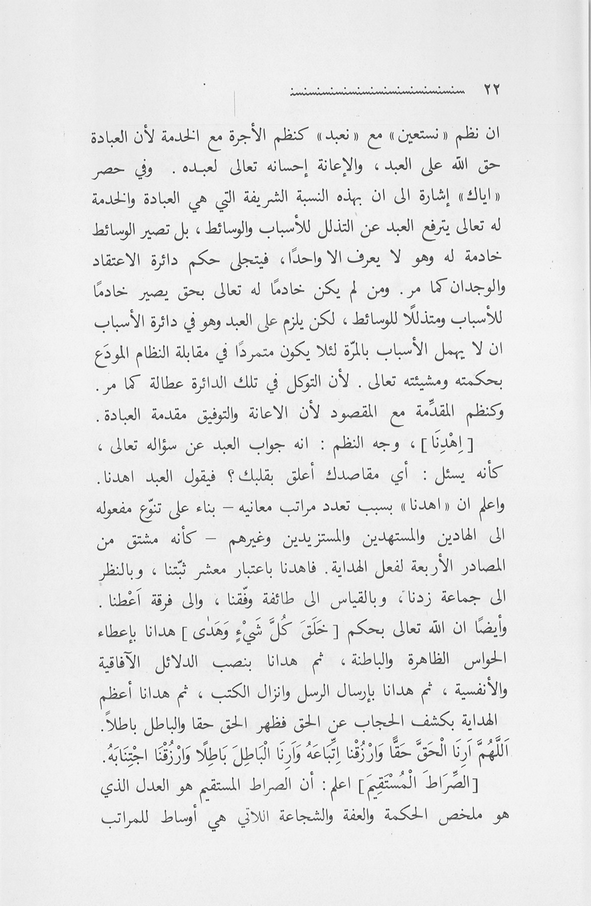 ٢٢
ان نظم «نستعين» مع «نعبد» كنظم الأجرة مع الخدمة لأن العبادة
حق الله على العبد، والإعانة إحسانه تعالى لعبده. وفي حصر
«اياك» إشارة الى ان بهذه النسبة الشريفة التي هي العبادة والخدمة
له تعالى يترفع العبد عن التذلل للأسباب والوسائط، بل تصير الوسائط
خادمة له وهو لا يعرف الا واحدًا، فيتجلى حكم دائرة الاعتقاد
والوجدان كما مر. ومن لم يكن خادمًا له تعالى بحق يصير خادمًا
للأسباب ومتذللًا للوسائط، لكن يلزم على العبد وهو في دائرة الأسباب
ان لا يهمل الأسباب بالمرّة لئلا يكون متمردًا في مقابلة النظام المودَع
بحكمته ومشيئته تعالى. لأن التوكل في تلك الدائرة عطالة كما مر.
وكنظم المقدِّمة مع المقصود لأن الاعانة والتوفيق مقدمة العبادة.
[اِهْدِنَا]، وجه النظم: انه جواب العبد عن سؤاله تعالى،
كأنه يسئل: أي مقاصدك أعلق بقلبك؟ فيقول العبد اهدنا.
واعلم ان «اهدنا» بسبب تعدد مراتب معانيه – بناء على تنوّع مفعوله
الى الهادين والمستهدين والمستزيدين وغيرهم – كأنه مشتق من
المصادر الأربعة لفعل الهداية. فاهدنا باعتبار معشر ثبّتنا، وبالنظر
الى جماعة زدنا، وبالقياس الى طائفة وفّقنا، والى فرقة اَعْطنا.
وأيضًا ان الله تعالى بحكم [خَلَقَ كُلَّ شَيْءٍ وَهَدٰى] هدانا بإعطاء
الحواس الظاهرة والباطنة، ثم هدانا بنصب الدلائل الآفاقية
والأنفسية، ثم هدانا بإرسال الرسل وانزال الكتب، ثم هدانا أعظم
الهداية بكشف الحجاب عن الحق فظهر الحق حقا والباطل باطلاً.
اَللّٰهُمَّ اَرِنَا الْحَقَّ حَقًّا وَارْزُقْنا اِتِّبَاعَهُ وَاَرِنَا الْبَاطِلَ بَاطِلًا وَارْزُقْنَا اجْتِنَابَهُ.
[الصِّرَاطَ الْمُسْتَقِيمَ] اعلم: أن الصراط المستقيم هو العدل الذي
هو ملخص الحكمة والعفة والشجاعة اللاتي هي أوساط للمراتب